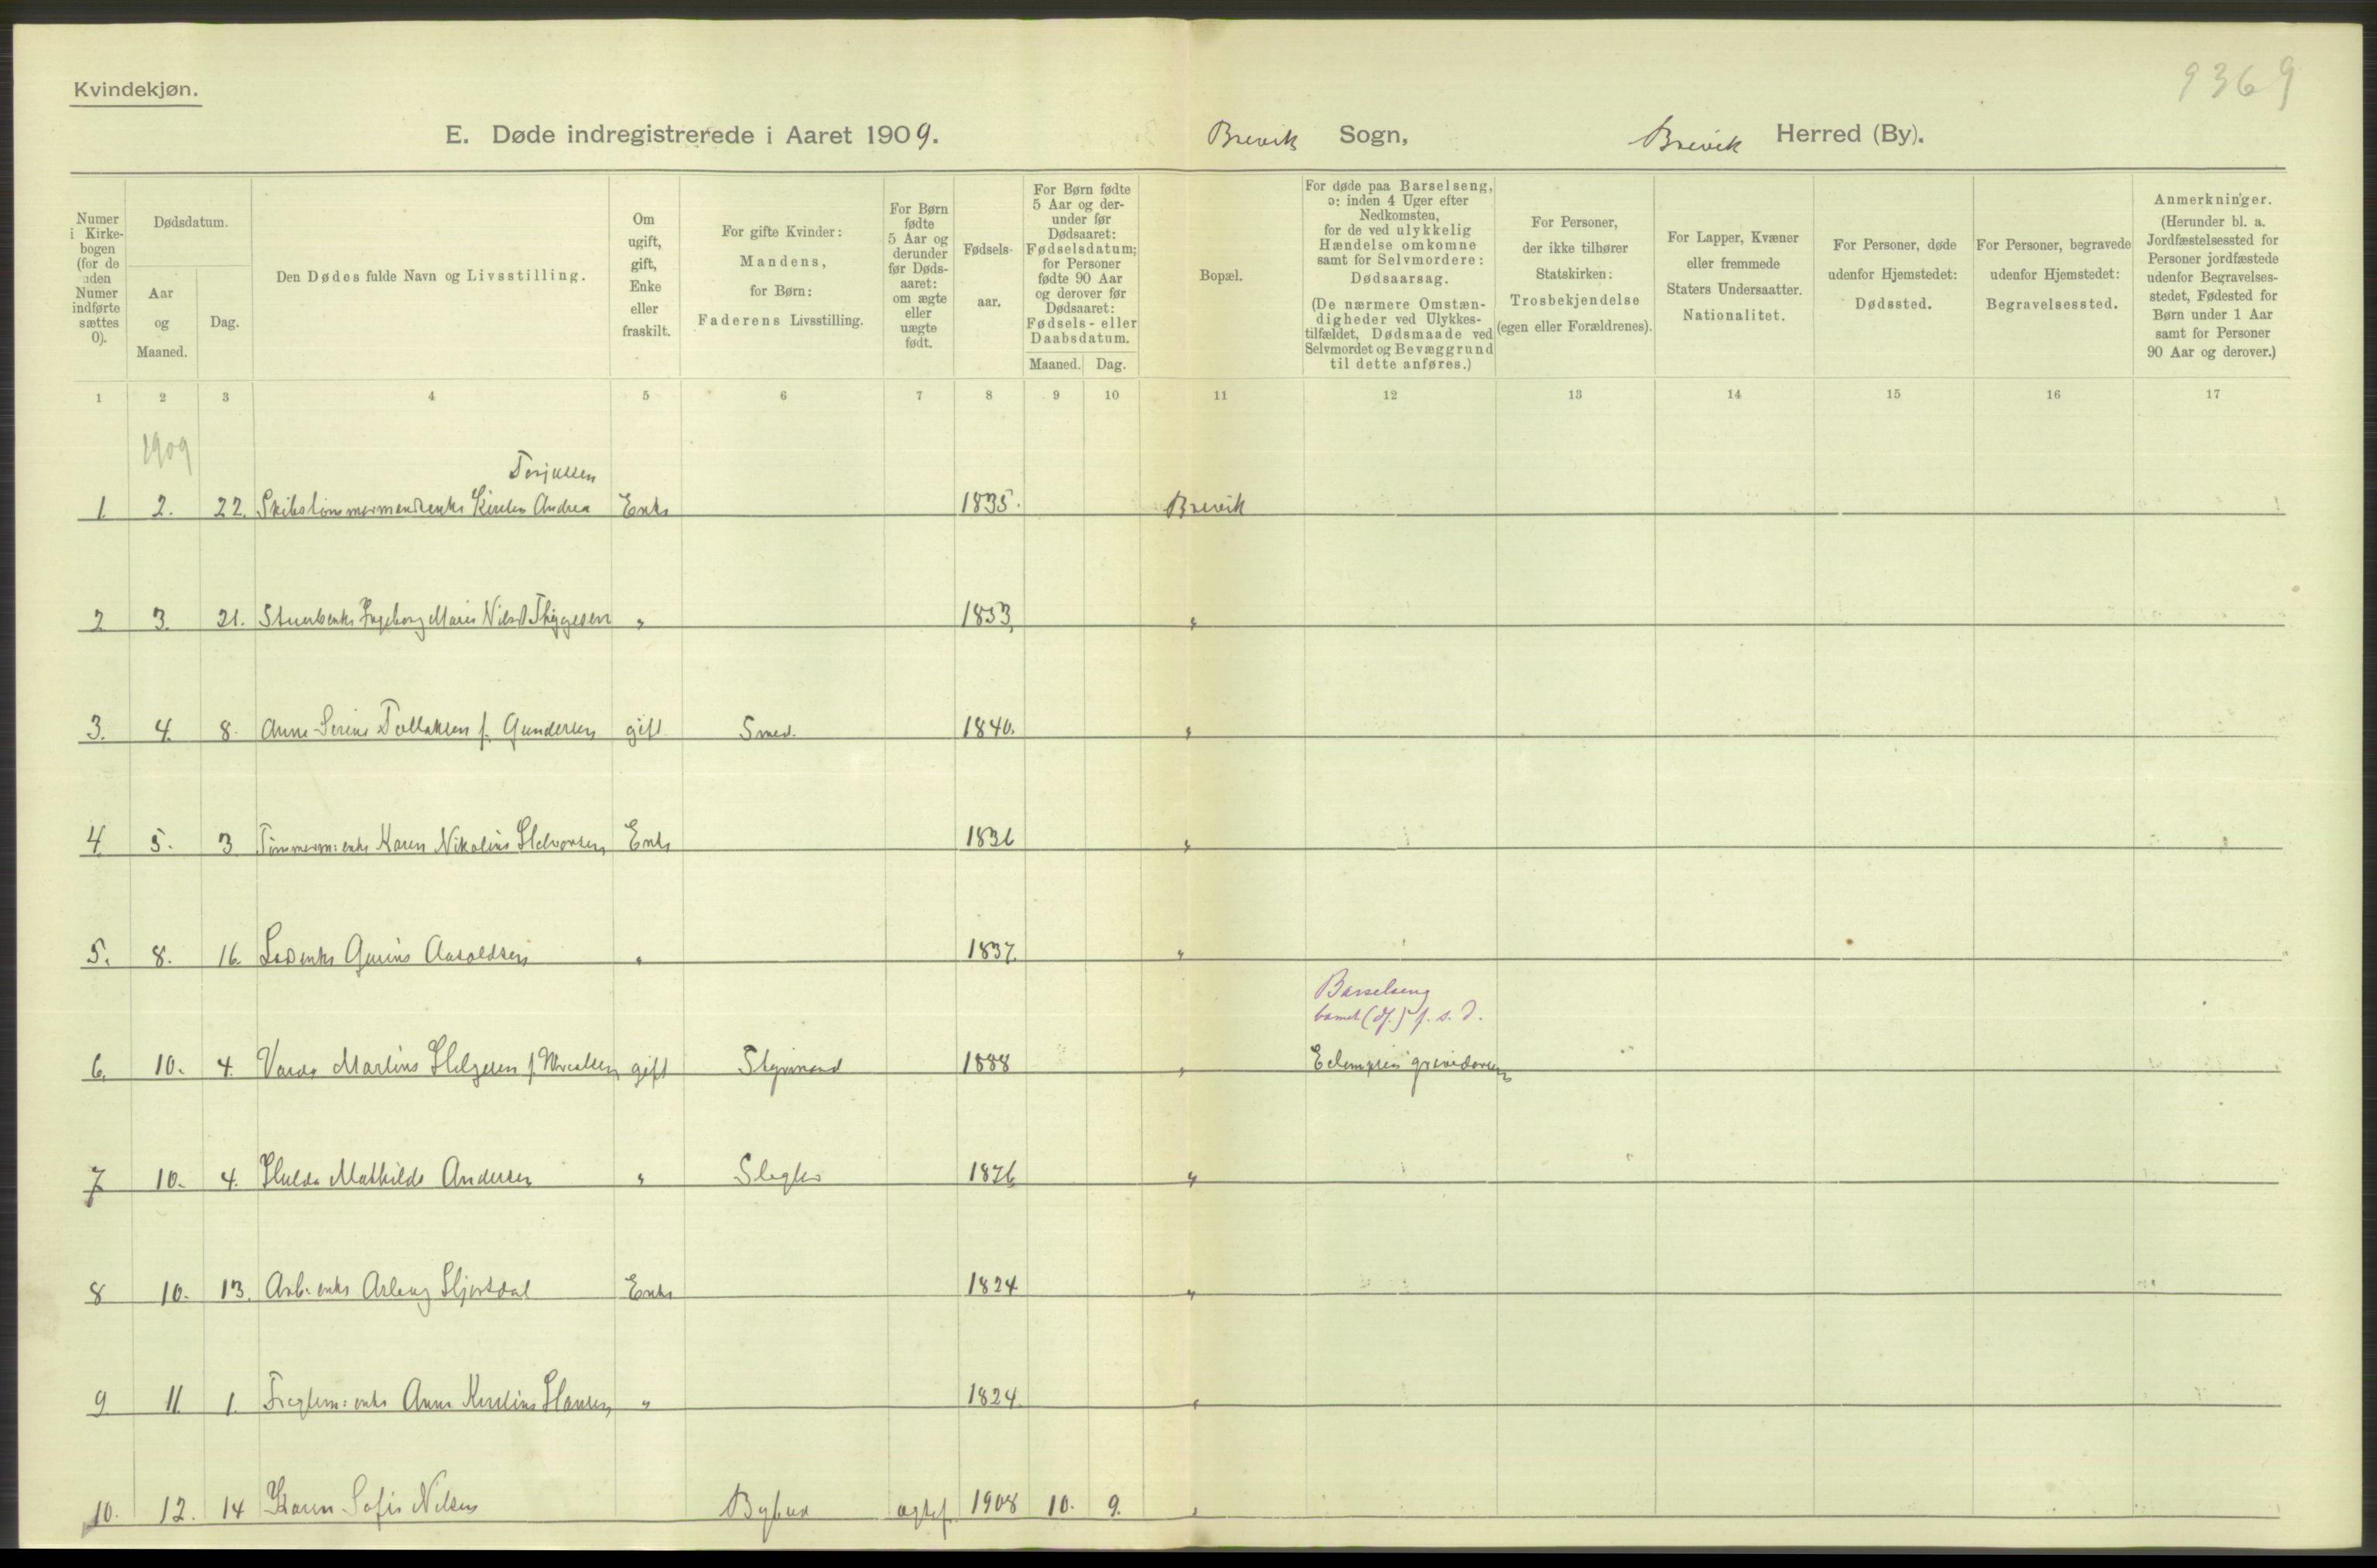 Kvindekjøn.
9369
E. Døde indregistrerede i Aaret 1909. Brevik Sogn, Brevik Herred (By).
Numer i Kirkebogen (for de uden Numer indførte sættes 0).
Dødsdatum.
Aar og Maaned.
Dag.
Den Dødes fulde Navn og Livsstilling.
Om ugift, gift, Enke eller fraskilt.
For gifte Kvinder: Mandens, for Børn: Faderens Livsstilling.
For Børn fødte 5 Aar og derunder før Dødsaaret: om ægte eller uægte født.
Fødselsaar.
For Børn fødte 5 Aar og derunder før Dødsaaret: Fødselsdatum; for Personer fødte 90 Aar og derover før Dødsaaret: Fødsels- eller Daabsdatum.
Maaned. Dag.
Bopæl.
For døde paa Barselseng, ɔ: inden 4 Uger efter Nedkomsten, for de ved ulykkelig Hændelse omkomne samt for Selvmordere: Dødsaarsag. (De nærmere Omstændigheder ved Ulykkestilfældet, Dødsmaade ved Selvmordet og Bevæggrund til dette anføres.)
For Personer, der ikke tilhører Statskirken: Trosbekjendelse (egen eller Forældrenes).
For Lapper, Kvæner eller fremmede Staters Undersaatter. Nationalitet.
For Personer, døde udenfor Hjemstedet: Dødssted.
For Personer, begravede udenfor Hjemstedet: Begravelsessted.
Anmerkninger. (Herunder bl. a. Jordfæstelsessted for Personer jordfæstede udenfor Begravelsesstedet, Fødested for Børn under 1 Aar samt for Personer 90 Aar og derover.)
1 2 3 4 5 6 7 8 9 10 11 12 13 14 15 16 17
1909
Torjussen
1. 2. 22. Skibstømmermandsenke Kirsten Andrea Enke 1835. Brevik
2 3. 21. Ingeborg Marie Thygesen " 1833 "
3. 4. 8. Anne Serine Tollaksen f. Gundersen gift Smed. 1840. "
4 5. 3 Tømmerm: enke Karen Nikoline Halvorsen Enke 1836 "
5. 8. 16. Lodsenke Gurine Aasoldsen " 1837. "
Barselseng
barnet (df.) f. s. d.
6. 10. 4. Martine Helgesen f. gift Styrmand 1888 " Eclampsia gravidarum
7 10. 4. Hulda Mathilde Andersen " Slagter 1876 "
8 10. 13. Arb: enke Aslaug Hjertdal Enke 1824 "
9 11. 1. enke Anne Kirstine Hansen " 1824. "
10. 12. 14 Karen Sofie Nilsen Bybud ægtef. 1908 10. 9. "